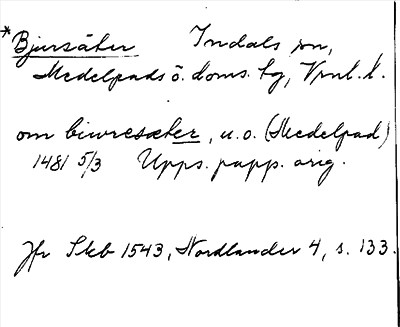 *Bjursåker Indals sn,
Medelpads ö. doms. tg, Vnrl. l.
om biwresaker, u. o. (Medelpad)
1481 5/3 Upps. papp. orig.
Jfr Skb 1543, Nordlander 4, s. 133.